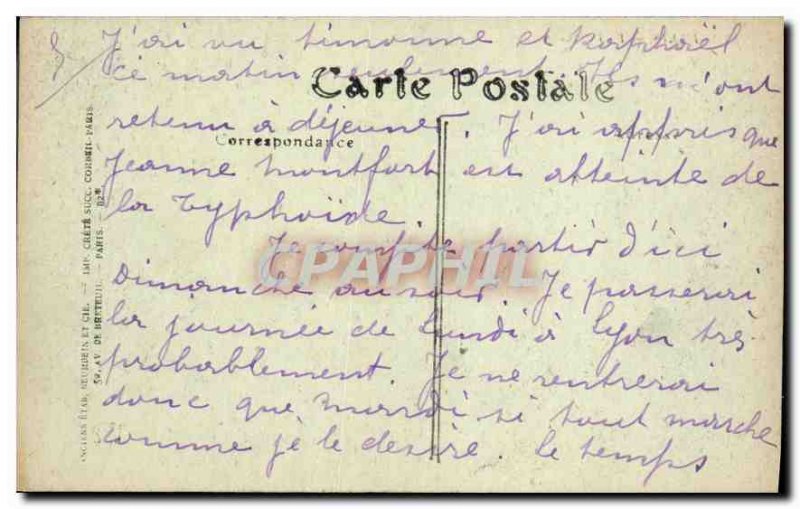 J'ai vu Simonne et Raphaël
ce matin seulement. Ils m'ont
Carte Postale
retenu à déjeuner. J'ai appris que
Correspondance
Jeanne Montfort est atteinte de
la typhoïde.
Je compte partir d'ici
CPAPHIL
Dimanche au soir. Je passerai
la journée de lundi à Lyon très
probablement. Je ne rentrerai
donc que mardi si tout marche
comme je le désire. Le temps
ANCIENS ÉTAB. NEURDEIN ET CIE. — IMP. CRÉTÉ SUCC. CORBEIL-PARIS.
52, AV. DE BRETEUIL. — PARIS. —